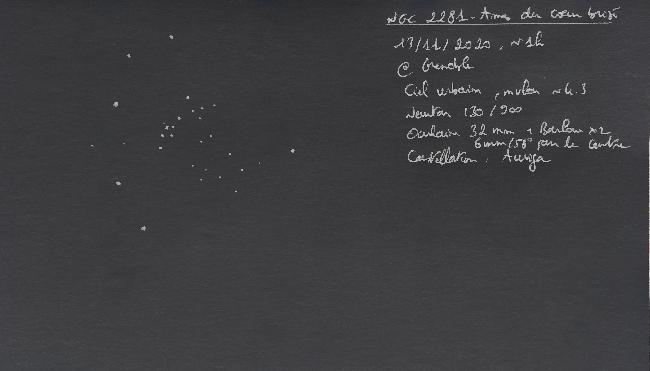 NGC 2281 - Amas du cœur brisé
17/11/2020, ~1h
@ Grenoble
Ciel urbain, mvlon ~4.3
Newton 130/900
Oculaire 32 mm + Barlow x2
6mm/58° pour le centre
Constellation: Auriga